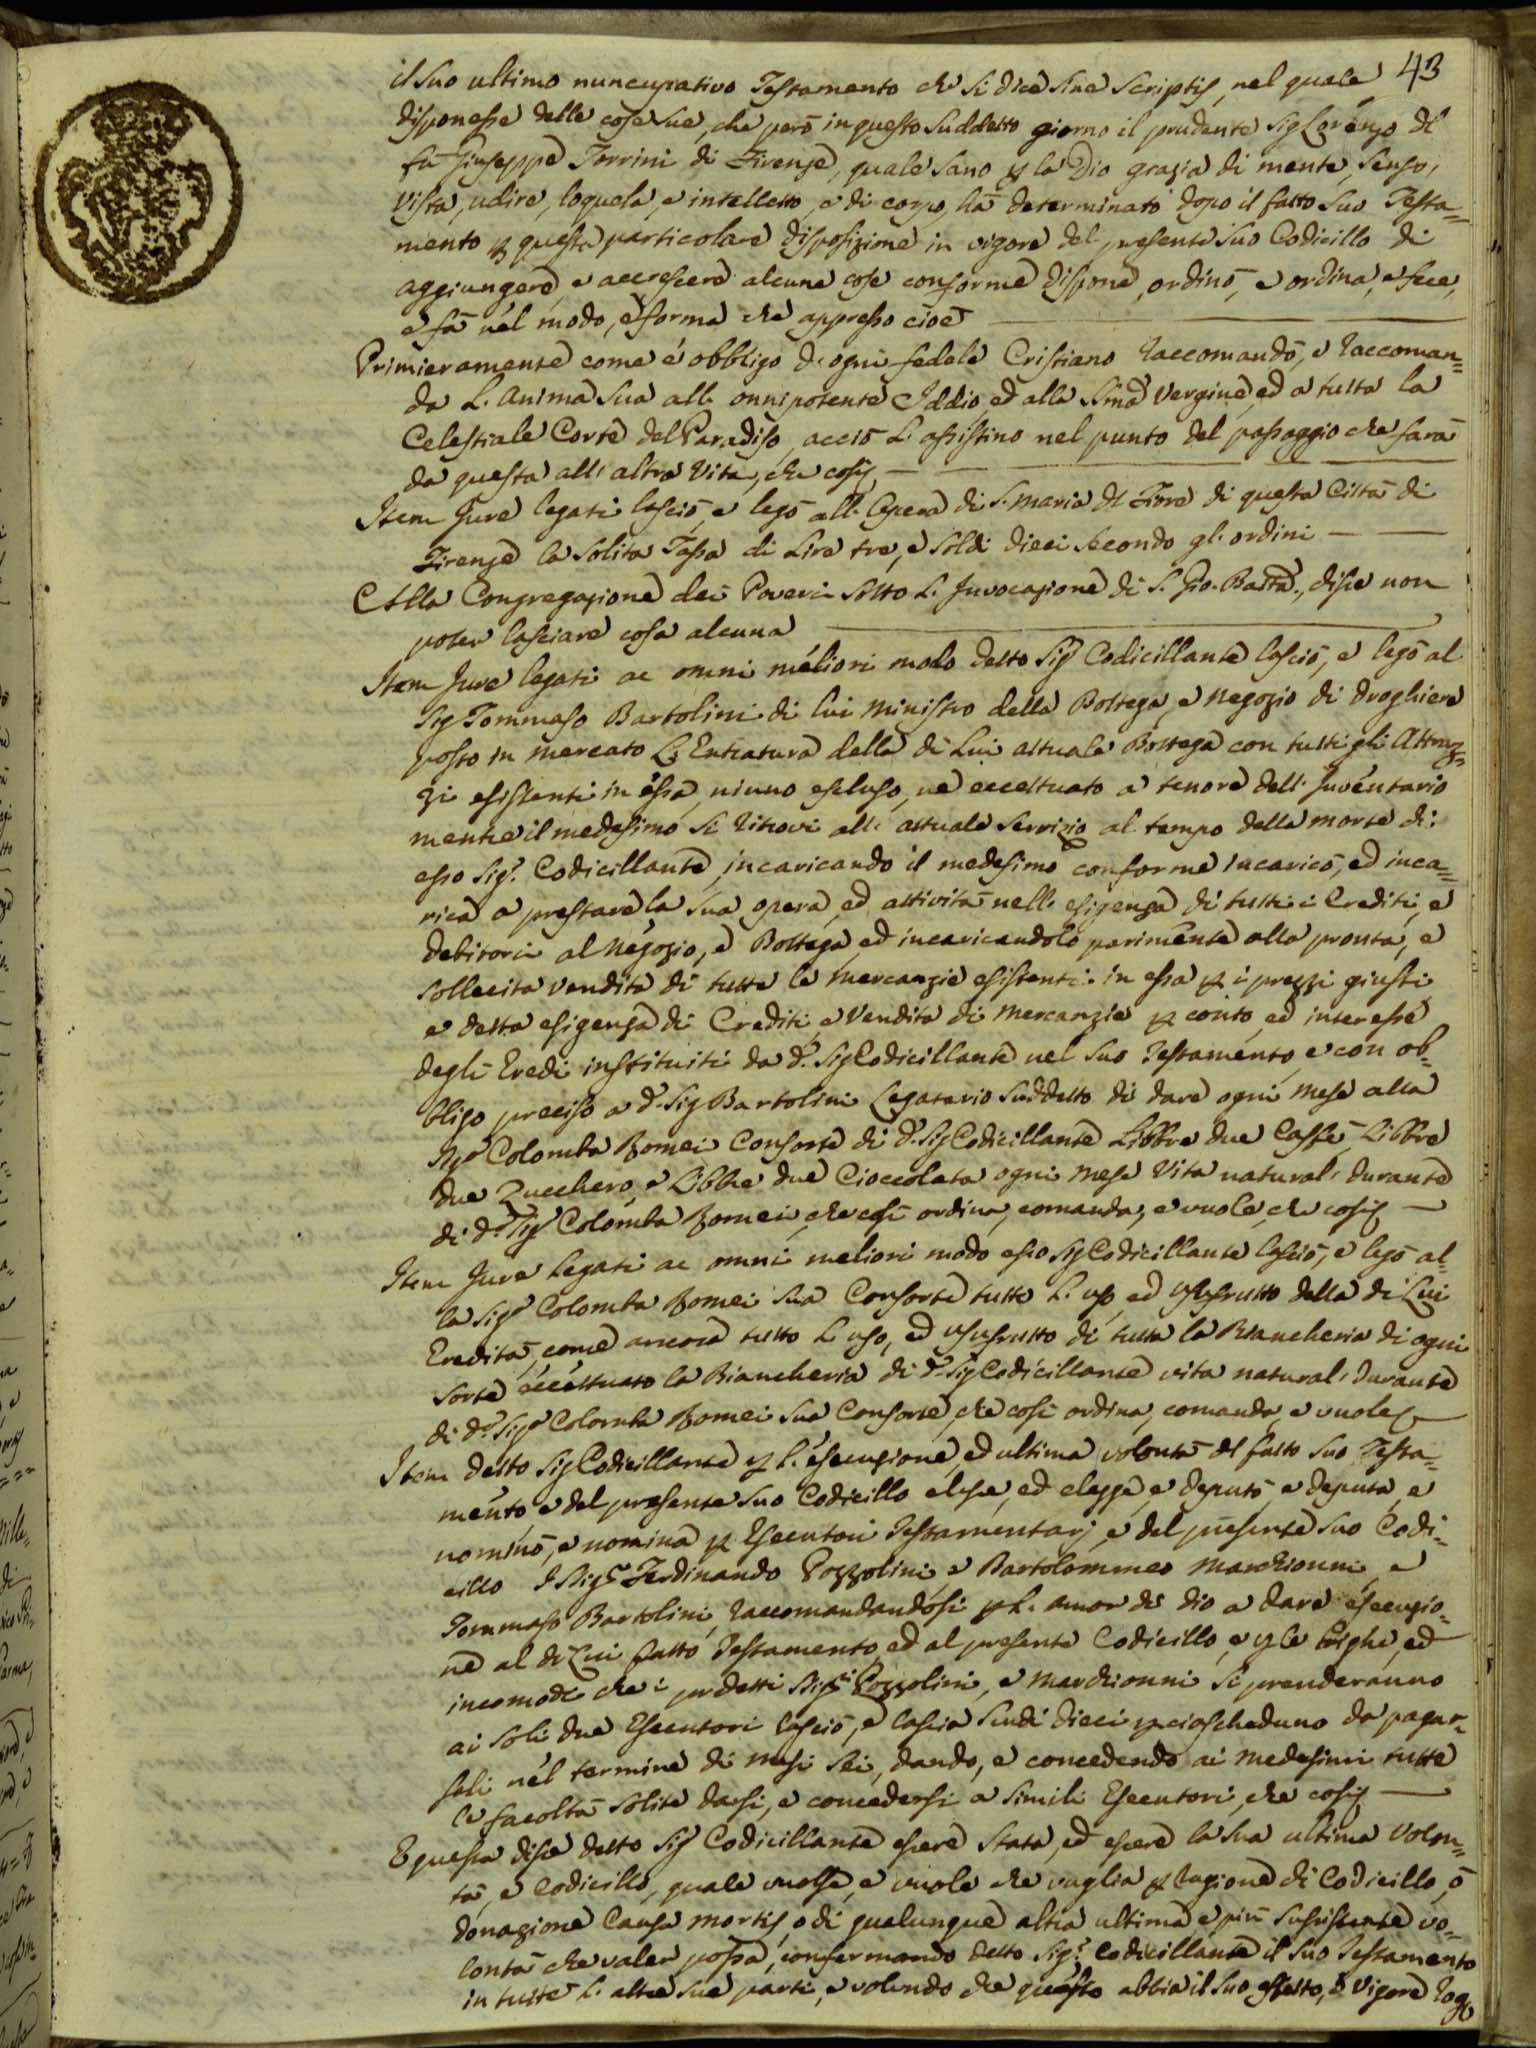 43
il suo ultimo nuncupativo Testamento che si dice sine scriptis, nel quale
disponesse delle cose sue, che però in questo suddetto giorno il prudente Sig Lorenzo del
fù Giuseppe Torrini di Firenze, quale sano p la Dio grazia di mente, senso,
vista, udire, loquela, e intelletto, e di corpo, hà determinato dopo il fatto suo Testa=
mento p questa particolare disposizione in vigore del presente suo Codicillo di
aggiungere, e accrescere alcune cose conforme dispone, ordinò, e ordina, e fece,
e fà nel modo, e forma che appresso cioè
Primieramente come è obbligo d'ogni fedele Cristiano raccomandò, e raccoman=
da L'anima sua all'onnipotente Iddio, ed alla Sma Vergine, ed a tutta la
Celestiale Corte del Paradiso, acciò L'assistino nel punto del passaggio che farà
da questa all'altra Vita, che così
Item Jure legati lasciò, e legò all'Opera di S. Maria del Fiore di questa Città di
Firenze la solita Tassa di Lire tre, e soldi dieci secondo gl'ordini
Alla Congregazione dei Poveri sotto L'Invocazione di S. Gio. Batta, disse non
poter lasciare cosa alcuna
Item Jure legati ac omni meliori modo detto Sig Codicillante lasciò, e legò al
Sig Tommaso Bartolini di lui Ministro della Bottega, e negozio di Droghiere
posto in Mercato L'Entratura della di Lui attuale Bottega con tutti gli Attraz=
zi esistenti in essa, niuno escluso, nè eccettuato a tenore dell'Inventario
mentre il medesimo si ritrovi all'attuale servizio al tempo della morte di
esso Sig.r Codicillante, incaricando il medesimo conforme incaricò, ed inca=
rica a prestare la sua opera, ed attività nell'esigenza di tutti i Crediti, e
debitori al negozio, e Bottega, ed incaricandolo parimente alla pronta, e
sollecita vendita di tutte le mercanzie esistenti in essa p i prezzi giusti
e detta esigenza di Crediti, e Vendita di Mercanzie p conto, ed interesse
degli Eredi instituiti da d.o Sig Codicillante nel suo Testamento, e con ob=
bligo preciso a d.o Sig Bartolini Legatario suddetto di dare ogni mese alla
Sig.a Colomba Bomei Consorte di d.o Sig Codicillante Libbre due Caffè, Libbre
due Zucchero, e Libbre due Cioccolata ogni mese vita natural' durante
di d.a Sig.a Colomba Bomei, che così ordina, comanda, e vuole, che così
Item Jure Legati ac omni meliori modo esso Sig Codicillante lasciò, e legò al=
la Sig.a Colomba Bomei sua Consorte tutto L'uso, ed Usufrutto della di Lui
Eredità, come ancora tutto L'uso, ed usufrutto di tutta la Biancheria di ogni
sorte eccettuato la Biancheria di d.o Sig Codicillante vita natural' durante
di d.a Sig.a Colomba Bomei sua Consorte, che così ordina, comanda, e vuole
Item detto Sig Codicillante p L'esecuzione, ed ultima volontà del fatto suo Testa=
mento e del presente suo Codicillo elesse, ed elegge, e deputò, e deputa, e
nominò, e nomina p Esecutori Testamentarj, e del presente suo Codi=
cillo I Sig.ri Ferdinando Pozzolini, e Bartolommeo Marchionni, e
Tommaso Bartolini, raccomandandosi p L'amor di Dio a dare esecuzio=
ne al di Lui fatto Testamento, ed al presente Codicillo, e p le brighe, ed
incomodi che i predetti Sig.ri Pozzolini, e Marchionni si prenderanno
ai soli due Esecutori lasciò, e lascia Scudi dieci p ciascheduno da pagar=
seli nel termine di mesi sei, dando, e concedendo ai medesimi tutte
le facoltà solite darsi, e concedersi a simili Esecutori, che così
E questa disse detto Sig Codicillante essere stata, ed essere la sua ultima Volon=
tà, e Codicillo, quale volse, e vuole che vaglia p ragione di Codicillo, ò
donazione Causa mortis, o di qualunque altra ultima e più sussistente vo=
lontà che valer possa, confermando detto Sig.r Codicillante il suo Testamento
in tutte L'altre sue parti, e volendo che questo abbia il suo effetto, e vigore